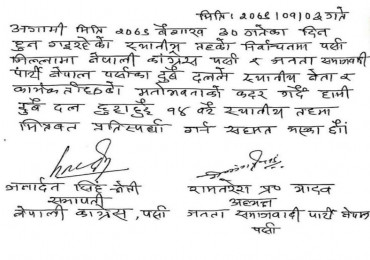 मिति: २०७९/०१/०३ गते
आगामी मिति २०७९ बैशाख ३० गतेका दिन
हुन गइरहेको स्थानीय तहको निर्वाचनमा पर्सा
जिल्लामा नेपाली काँग्रेस पर्सा र जनता समाजवादी
पार्टी नेपाल पर्साका दुबै दलले स्थानीय नेता र
कार्यकर्ताहरुको मनोभावनाको कदर गर्दै हामी
दुबै दल छुट्टाछुट्टै १४ वटै स्थानीय तहमा
मित्रवत प्रतिस्पर्धा गर्न सहमत भएका छौं।
जनार्दन सिंह क्षेत्री
सभापती
नेपाली काँग्रेस, पर्सा
रामनरेश प्र० यादव
अध्यक्ष
जनता समाजवादी पार्टी नेपाल
पर्सा